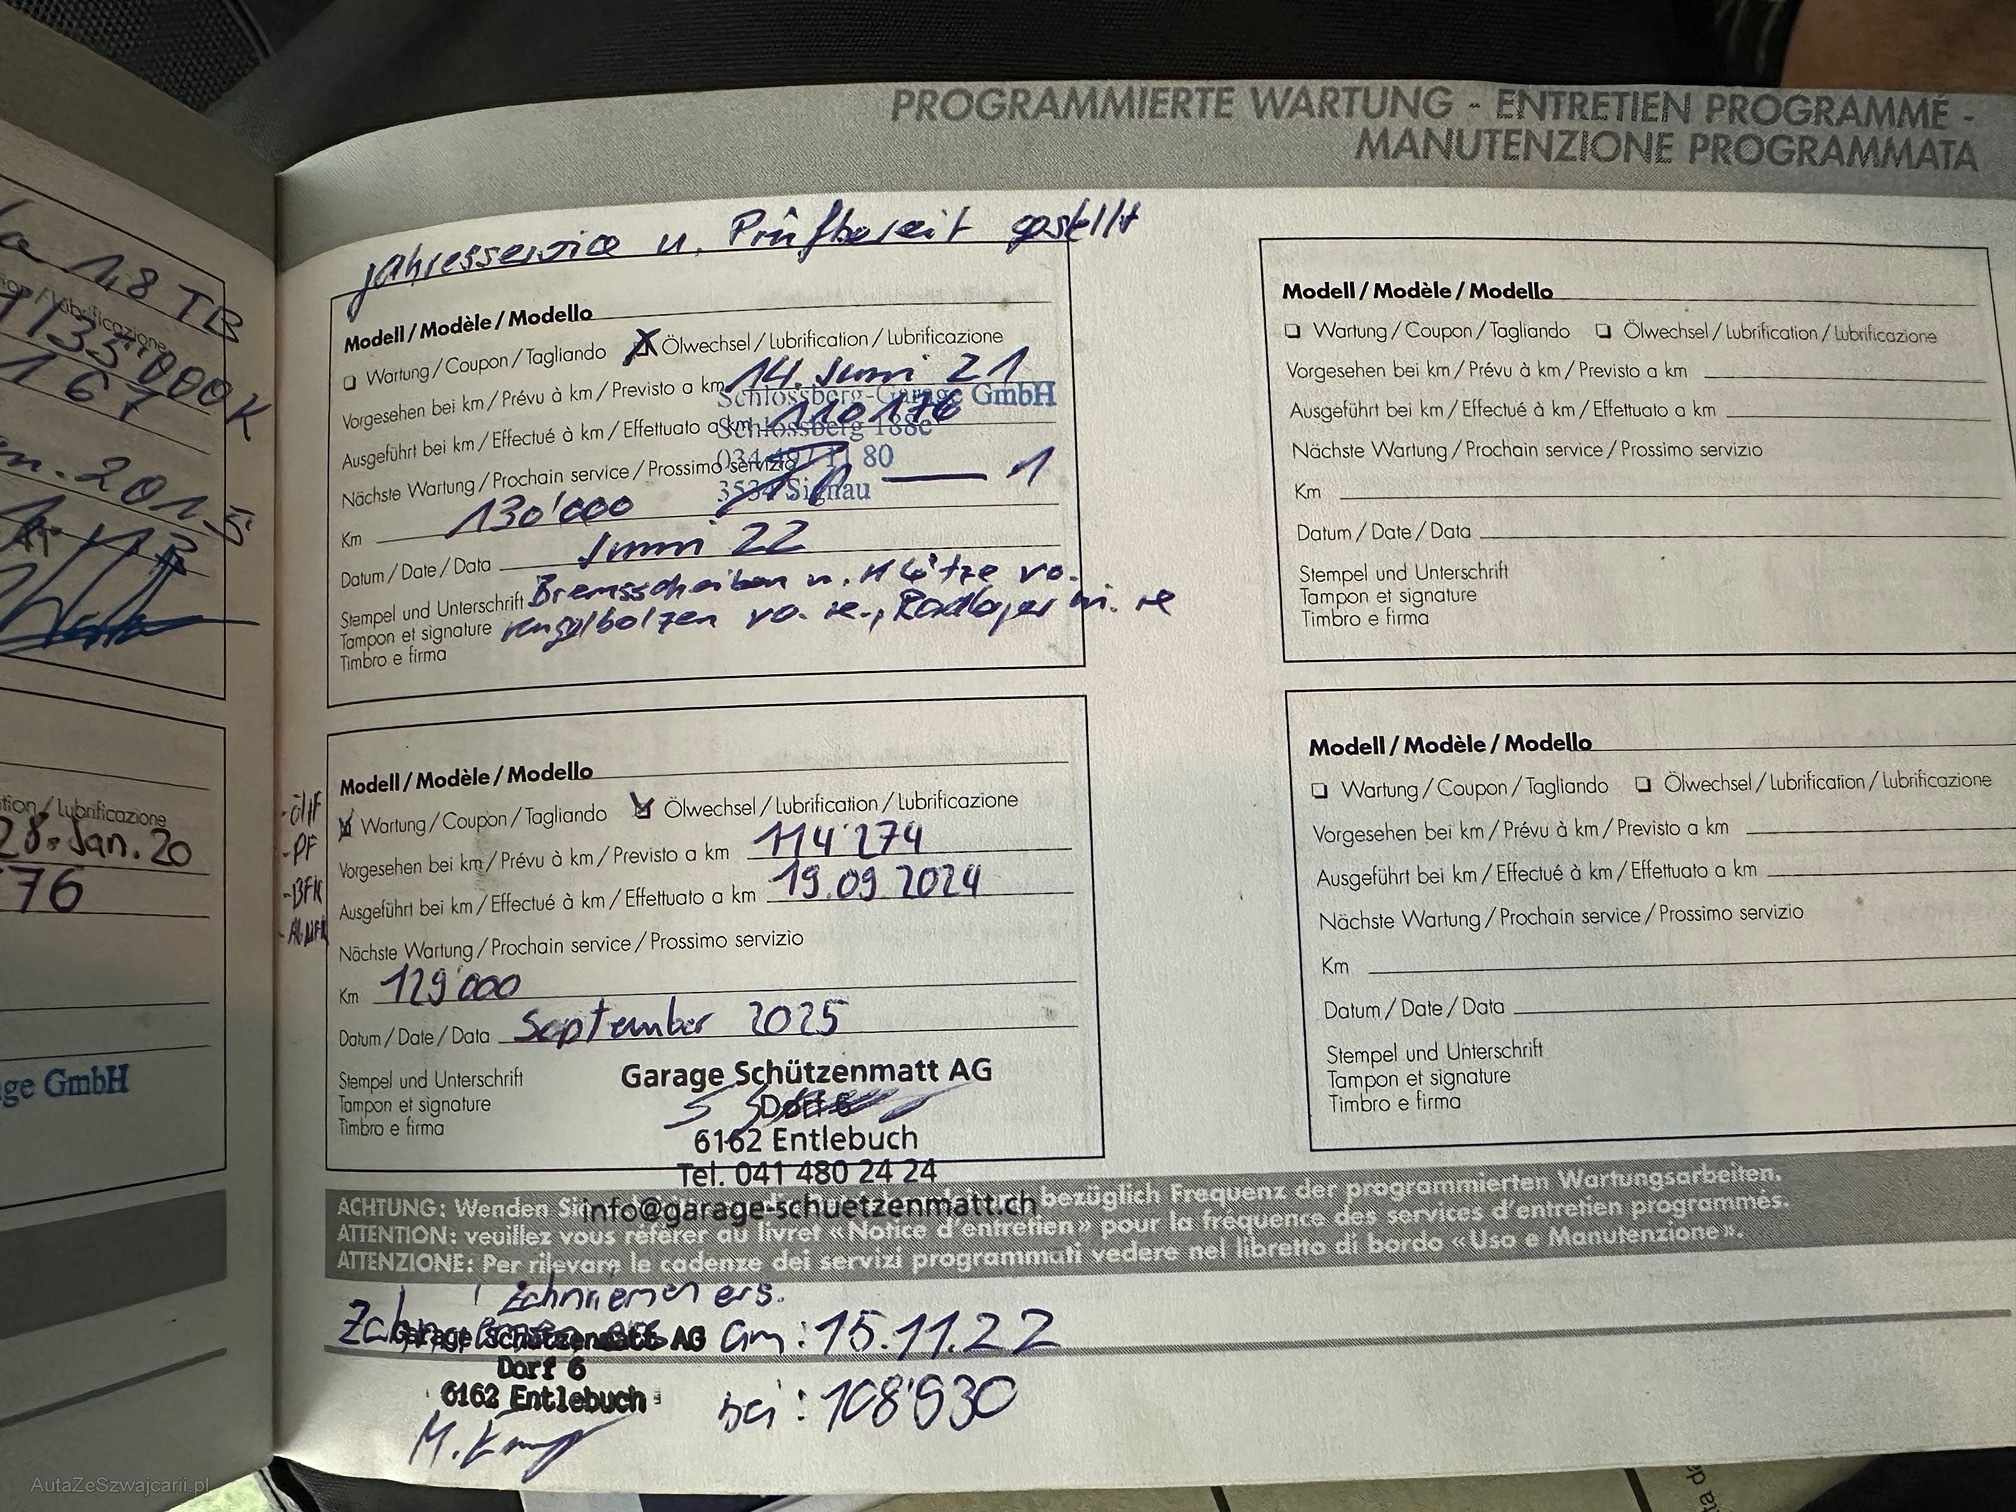 PROGRAMMIERTE WARTUNG - ENTRETIEN PROGRAMMÉ -
MANUTENZIONE PROGRAMMATA
1,8 TB
/ Lubrificazione
167
2015
tion / Lubrificazione
28. Jan. 20
76
ge GmbH
Jahresservice u. Prüfbereit gestellt
Modell / Modèle / Modello
Wartung / Coupon / Tagliando Ölwechsel / Lubrification / Lubrificazione
Vorgesehen bei km / Prévu à km / Previsto a km 14. Juni 21
Schlossberg-Garage GmbH
Ausgeführt bei km / Effectué à km / Effettuato a km 110176
Schlossberg 188c
Nächste Wartung / Prochain service / Prossimo servizio
80
3534 Signau
Km 130'000
Datum / Date / Data Juni 22
Stempel und Unterschrift Bremsscheiben u. Klötze vo.
Tampon et signature vo. re., Radlager hi. re
Timbro e firma
Modell / Modèle / Modello
Wartung / Coupon / Tagliando Ölwechsel / Lubrification / Lubrificazione
Vorgesehen bei km / Prévu à km / Previsto a km 114'274
Ausgeführt bei km / Effectué à km / Effettuato a km 19.09.2024
Nächste Wartung / Prochain service / Prossimo servizio
Km 129'000
Datum / Date / Data September 2025
Stempel und Unterschrift
Tampon et signature
Timbro e firma
- ÖlF
- PF
- BFK
Garage Schützenmatt AG
Dorf 6
6162 Entlebuch
Tel. 041 480 24 24
info@garage-schuetzenmatt.ch
Modell / Modèle / Modello
Wartung / Coupon / Tagliando Ölwechsel / Lubrification / Lubrificazione
Vorgesehen bei km / Prévu à km / Previsto a km
Ausgeführt bei km / Effectué à km / Effettuato a km
Nächste Wartung / Prochain service / Prossimo servizio
Km
Datum / Date / Data
Stempel und Unterschrift
Tampon et signature
Timbro e firma
Modell / Modèle / Modello
Wartung / Coupon / Tagliando Ölwechsel / Lubrification / Lubrificazione
Vorgesehen bei km / Prévu à km / Previsto a km
Ausgeführt bei km / Effectué à km / Effettuato a km
Nächste Wartung / Prochain service / Prossimo servizio
Km
Datum / Date / Data
Stempel und Unterschrift
Tampon et signature
Timbro e firma
ACHTUNG: Wenden Sie bezüglich Frequenz der programmierten Wartungsarbeiten.
ATTENTION: veuillez vous référer au livret «Notice d'entretien» pour la fréquence des services d'entretien programmés.
ATTENZIONE: Per rilevare le cadenze dei servizi programmati vedere nel libretto di bordo «Uso e Manutenzione».
Zahnriemen ers.
Garage Schützenmatt AG am: 15.11.22
Dorf 6
6162 Entlebuch bei: 108'930
AutaZeSzwajcarii.pl